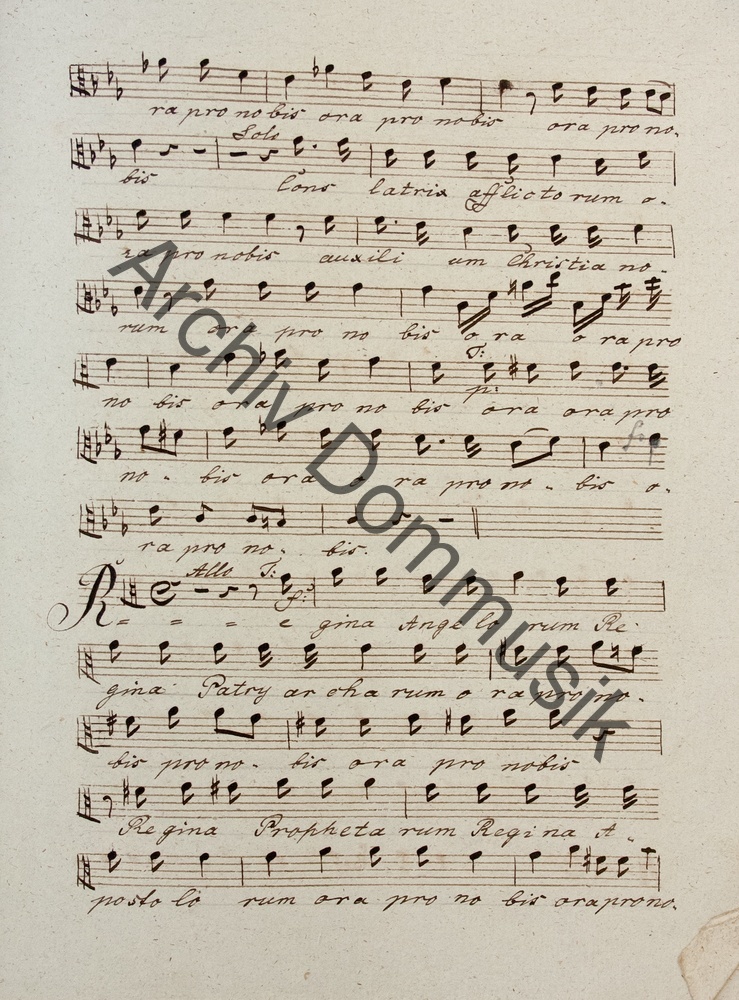 ra pro no bis ora pro nobis ora pro no-
Solo
bis Cons latrix afflicto rum o-
ra pro nobis auxili um Christia no-
rum ora pro no bis o ra o ra pro
T:
p:
no bis ora pro no bis ora ora pro
no- bis ora o ra pro no- bis o-
ra pro no- bis.
Allo T:
f:
R = = = e gina Ange lo rum Re
gina Patry ar cha rum o ra pro no-
bis pro no- bis ora pro nobis
Regina Propheta rum Regina A-
posto lo rum ora pro no bis ora pro no-
Archiv Dommusik